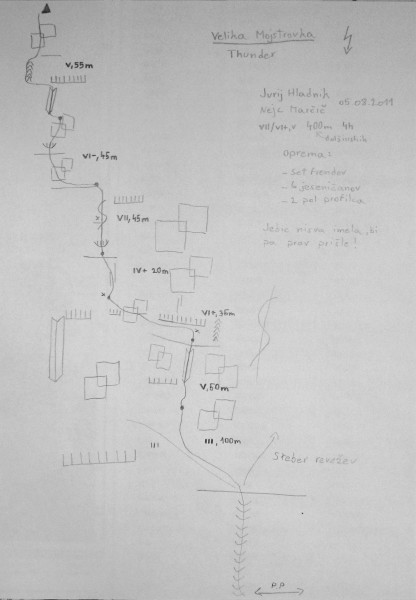 Velika Mojstrovka
Thunder
Jurij Hladnik
Nejc Marčič 05.08.2011
VII/VI+,V 400m 4h
oprema:
- set frendov
- 4 jeseničanov
- 1 pol profilca
Ježic nisva imela, bi
pa prov prišle!
V, 55m
VI-, 45m
VII, 45m
IV+ 20m
VI+, 35m
V, 60m
III, 100m
III
Steber
P.P.